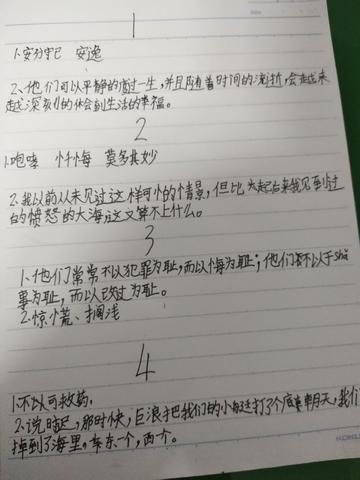 1
1.安分守己 安逸
2、他们可以平静的度过一生，并且随着时间的流逝，会越来
越深刻的体会到生活的幸福。
2
1.咆哮 忏悔 莫名其妙
2.我以前从未见过这样可怕的情景，但比起来我见到过
的愤怒的大海这又算不上什么。
3
1、他们常常不以犯罪为耻，而以悔为耻；他们不以干shǎ
事为耻，而以改过为耻。
2.惊慌、搁浅
4
1.不以可救药，
2.说时迟，那时快，巨浪把我们的小艇打了个底朝天，我们
掉到了海里，东一个，西一个。